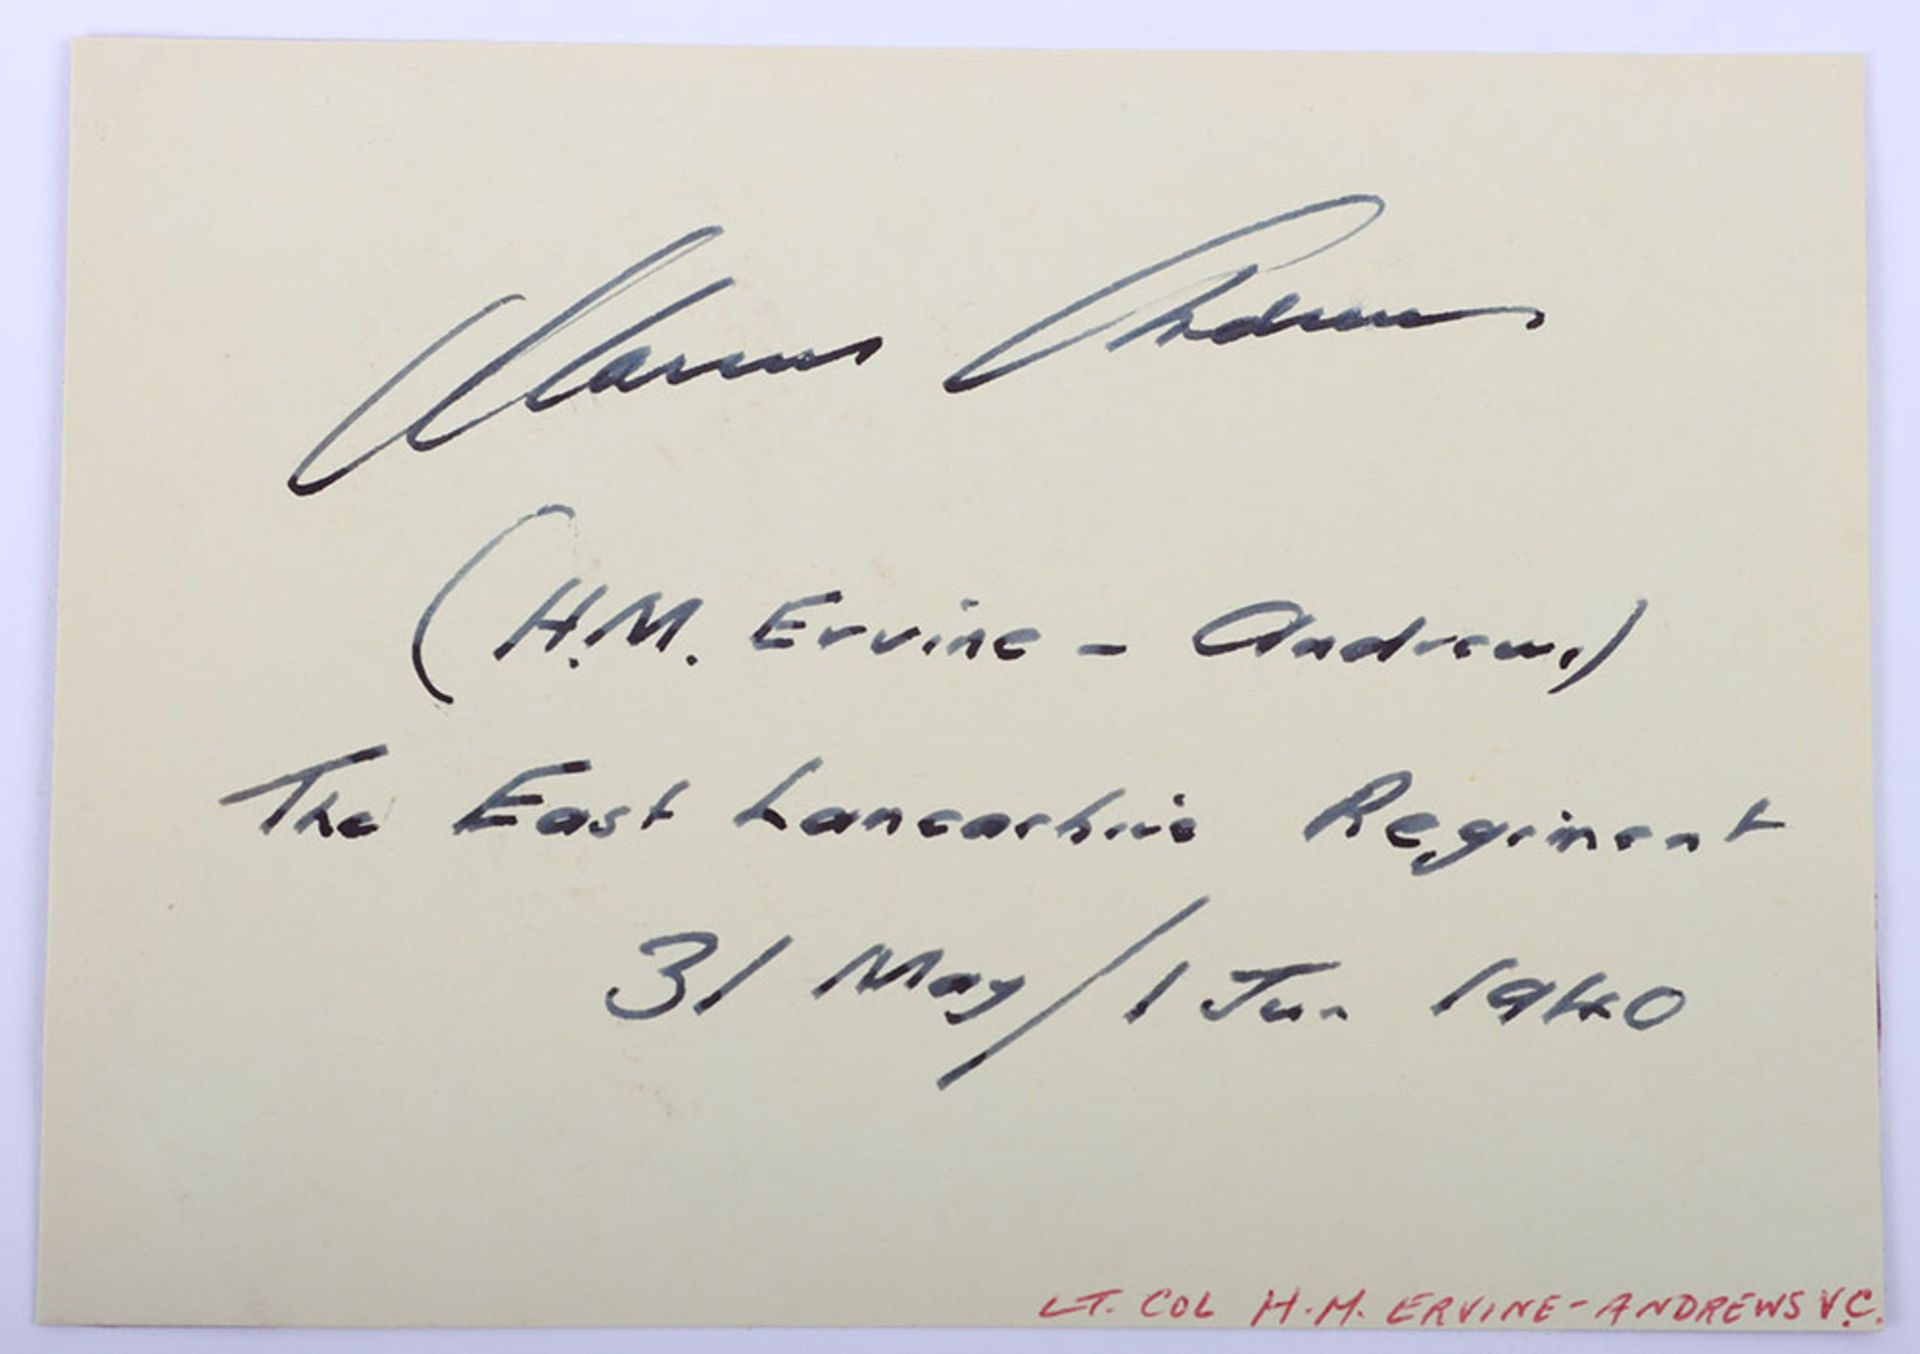 Marcus Andrews
(H.M. Ervine - Andrews)
The East Lancashire Regiment
31 May/1 Jun. 1940
LT. COL H.M. ERVINE-ANDREWS V.C.